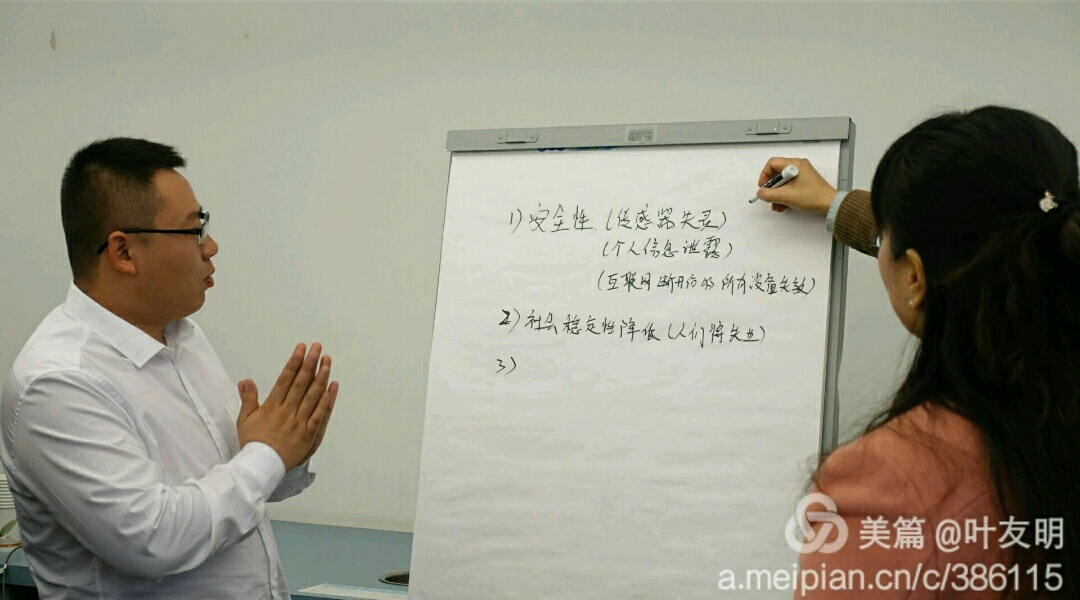 1) 安全性 (传感器失灵)
(个人信息泄露)
(互联网断开后的所有设备失效)
2) 社会稳定性降低 (人们将失业)
3)
美篇 @叶友明
a.meipian.cn/c/386115